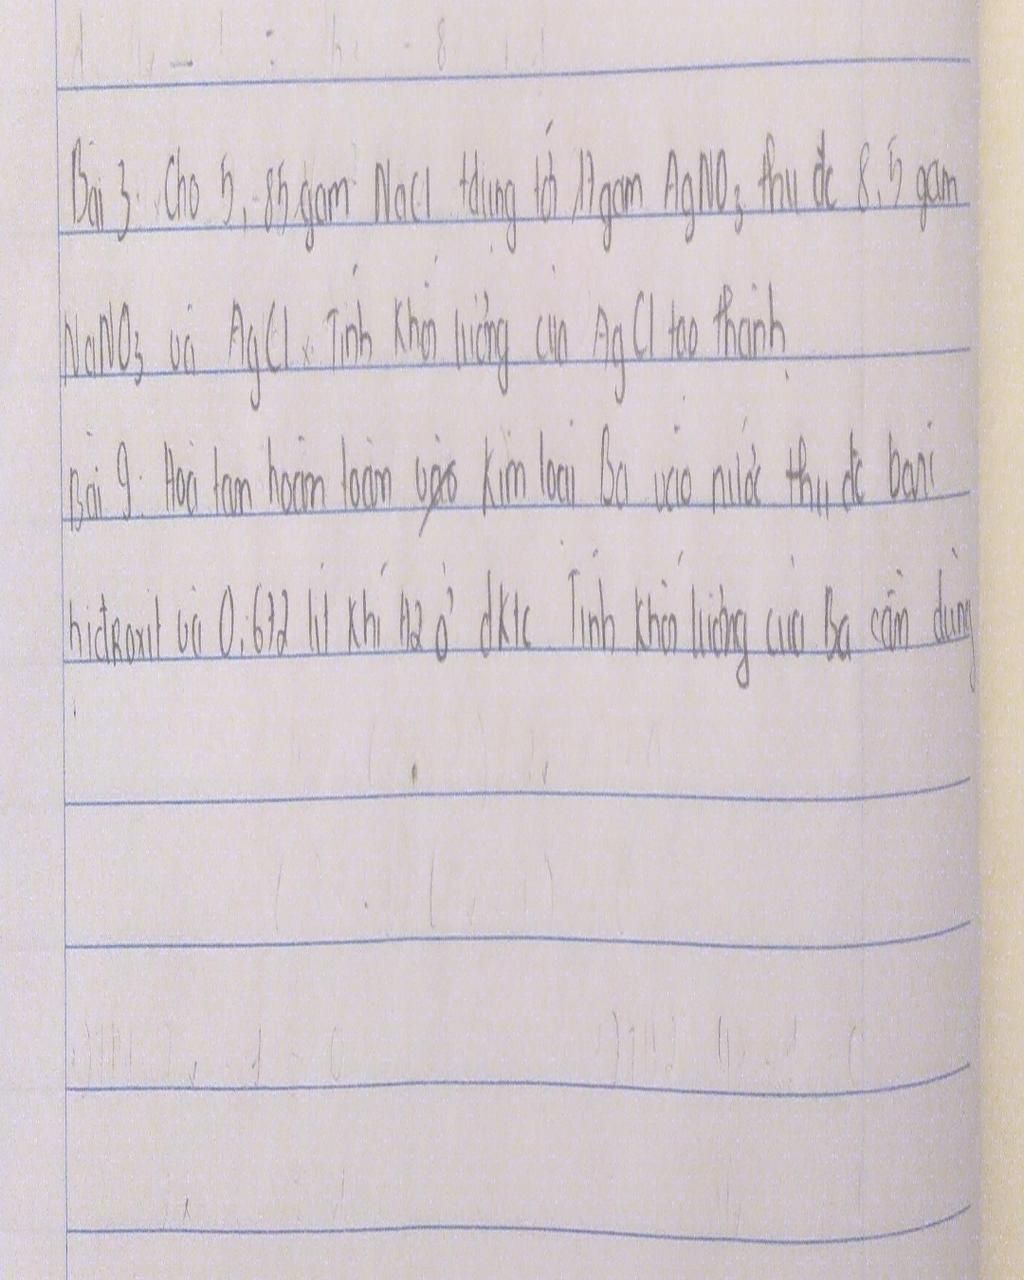 Bài 3: Cho 5,85 gam NaCl tdụng tới 17 gam AgNO3 thu đc 8,5 gam
NaNO3 và AgCl. Tính khối lượng của AgCl tạo thành
Bài 9: Hoà tan hoàn toàn kim loại Ba vào nước thu đc bari
hiđroxit và 0,672 lít khí H2 ở đktc Tính khối lượng của Ba cần dùng